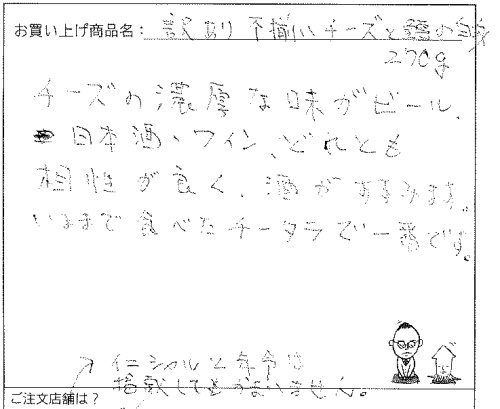 お買い上げ商品名：訳あり 不揃いチーズと鱈の
270g
チーズの濃厚な味がビール、
日本酒、ワイン、どれとも
相性が良く、酒がすすみます。
いままで食べたチータラで一番です。
イニシャルと年令は
掲載してもかまいません。
ご注文店舗は？